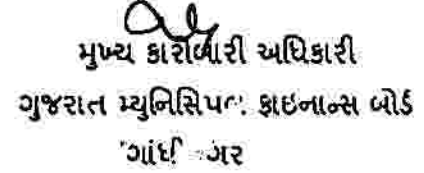 મુખ્ય કારોબારી અધિકારી
ગુજરાત મ્યુનિસિપલ ફાઇનાન્સ બોર્ડ
ગાંધીનગર